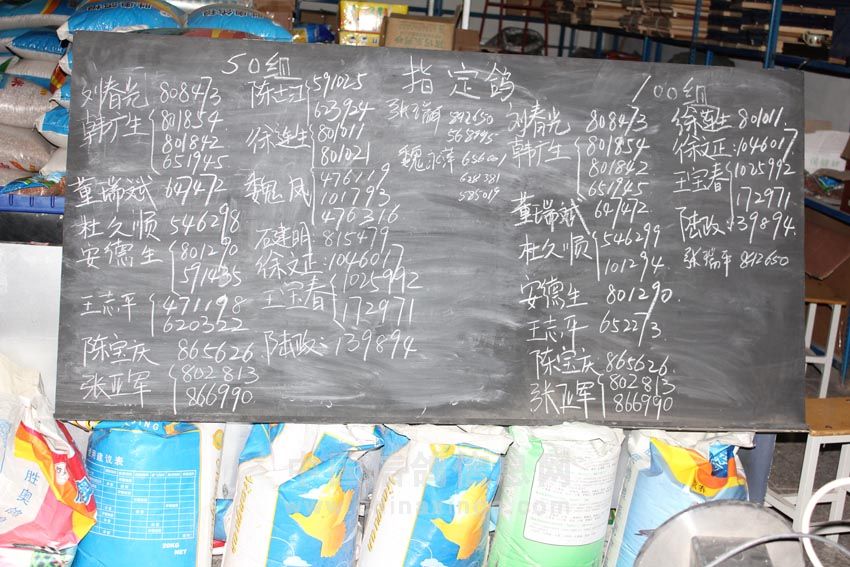 50组
指定鸽
100组
刘春光 808473
韩广生 801854
801842
651945
董瑞斌 647472
杜久顺 546298
安德生 801290
571435
王志平 471198
620322
陈宝庆 865626
张亚军 802813
866990
陈士江 591025
623924
徐连生 801011
801021
魏凤 476119
101793
476316
石建明 815479
徐文正:1046017
王宝春 1025992
172971
陆政:139894
842650
568945
魏永萍 656001
628381
585019
刘春光 808473
韩广生 801854
801842
651945
董瑞斌 647472
杜久顺 546299
101294
安德生 801290.
王志平 652273
陈宝庆 865626.
张亚军 802813
866990
徐连生 801011.
徐文正:1046017
王宝春 1025992
172971
陆政:139894
张瑞平 842650
胜奥鸽
使用建议表
20KG
NET